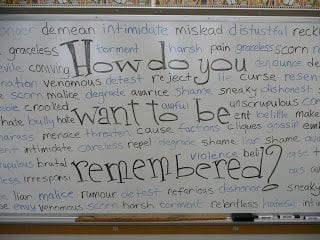 demean intimidate mislead distrustful
graceless torment harsh pain graceless scorn
How do you
conniving denounce
venomous detest reject lie curse resent
scorn malice degrade avarice shame sneaky dishonest
crooked awful unscrupulous
want to be
hate bully hate ent belittle make
menace threaten cause factions cliques gossip
intimidate careless repel degrade shame liar shame
brutal violence
remembered?
irresponsi
liar malice rumour detest nefarious dishonor sneaky
envy venomous scorn harsh torment relentless hateful